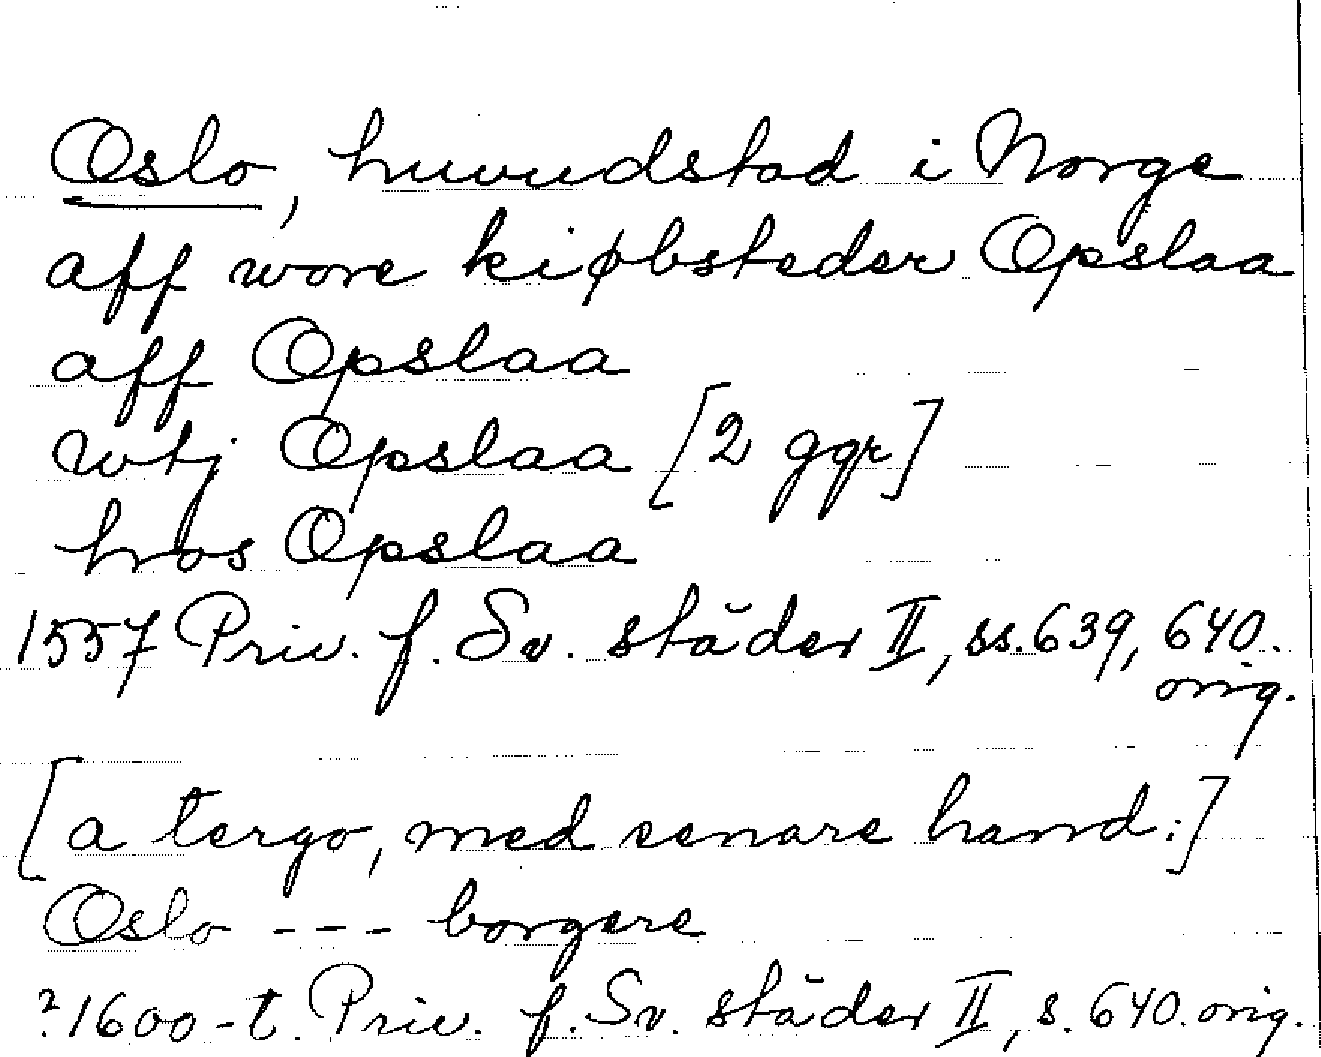 Oslo, huvudstad i Norge
aff wore kiøbsteder Opslaa
aff Opslaa
wtj Opslaa [2 ggr]
hros Opslaa
1557 Priv. f. Sv. städer II, ss. 639, 640.
orig.
[a tergo, med senare hand:]
Oslo --- borgere
?1600-t. Priv. f. Sv. städer II, s. 640. orig.